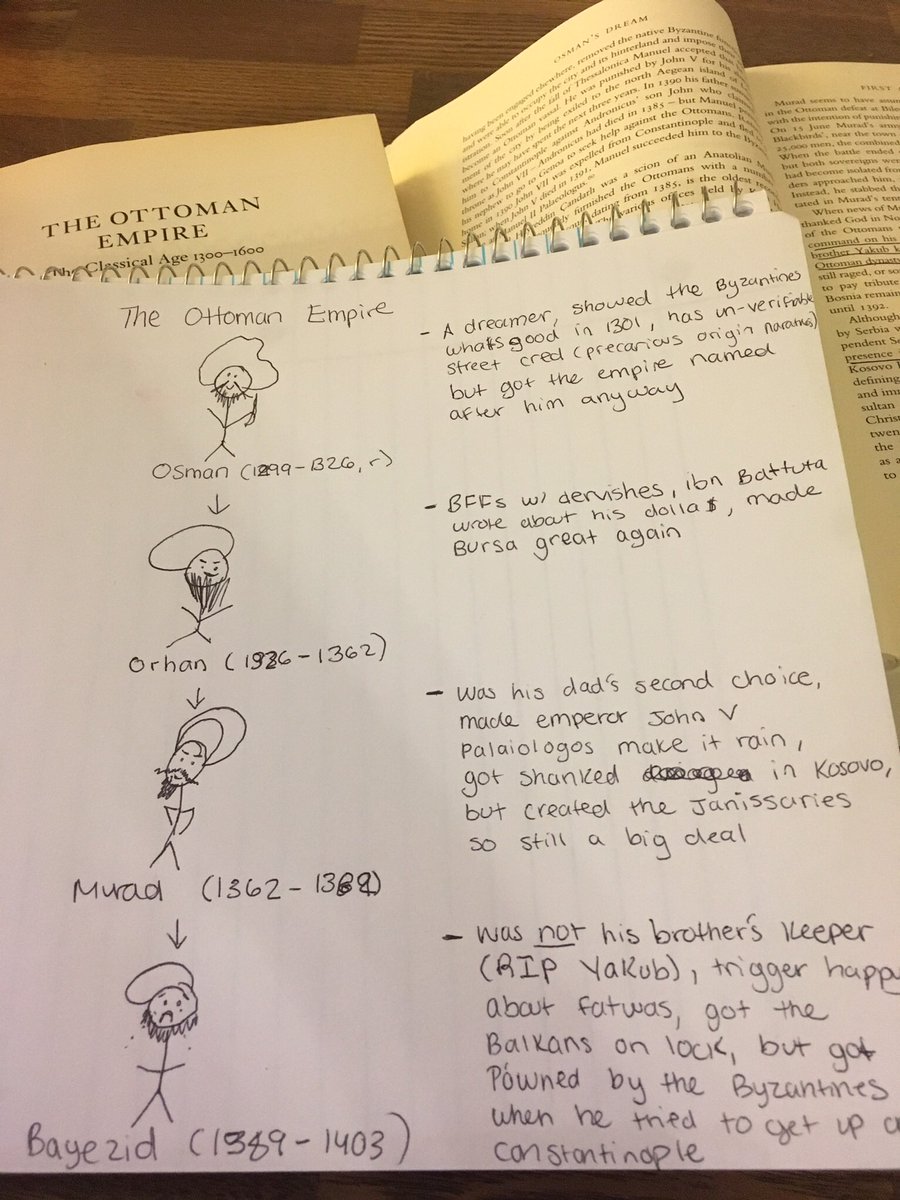 OSMAN'S DREAM
having been engaged elsewhere, removed the native Byzantine
and were able to occupy the city and its hinterland and impose their
tration. Soon after the fall of Thessalonica Manuel accepted
become an Ottoman vassal. He was punished by John V for his
ment of the city by being exiled to the north Aegean island of
where he may have spent the next three years. In 1390 his father
to Constantinople against Andronicus' son John who
throne as John VII – Andronicus had died in 1385 – but Manuel
his nephew to go to Genoa to seek help against the Ottomans.
in 1390, John VII was expelled from Constantinople and
John V died in 1391, Manuel succeeded him to the
II Palaeologus.
Candarlı was a scion of an Anatolian
furnished the Ottomans with a
dating from 1385, is the oldest
various offices held by
FIRST
Murad seems to have
in the Ottoman defeat at
with the intention of
On 15 June Murad's
Blackbirds', near the town
25,000 men, the combined
When the battle ended
but both sovereigns were
had become isolated from
ders approached him,
Instead, he stabbed the
tated in Murad's
When news of
thanked God in
of the Ottomans
command on his
brother Yakub
Ottoman dynasty
still raged, or
to pay tribute
Bosnia remain
until 1392.
Although
by Serbia
pendent
presence
Kosovo
defining
and
sultan
Christ
the
as a
to
THE OTTOMAN
EMPIRE
The Classical Age 1300–1600
The Ottoman Empire
- A dreamer, showed the Byzantines
whats good in 1301, has un-verifiable
street cred (precarious origin narratives)
but got the empire named
after him anyway
Osman (1299-1326, r)
↓
- BFFs w/ dervishes, ibn Battuta
wrote about his dolla$, made
Bursa great again
Orhan (1326-1362)
↓
- Was his dad's second choice,
made emperor John V
Palaiologos make it rain,
got shanked in Kosovo,
but created the Janissaries
so still a big deal
Murad (1362-1389)
↓
- Was not his brother's keeper
(RIP Yakub), trigger happy
about fatwas, got the
Balkans on lock, but got
Powned by the Byzantines
when he tried to get up
constantinople
Bayezid (1389-1403)